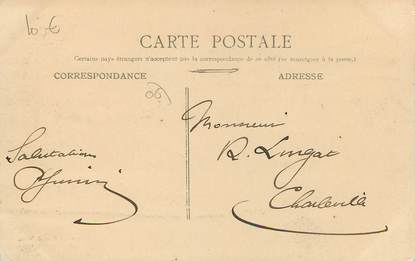 10 €
CARTE POSTALE
Certains pays étrangers n'acceptent pas la correspondance de ce côté (se renseigner à la poste.)
CORRESPONDANCE
ADRESSE
06
Salutations
Monsieur
R. Lingat
Charleville